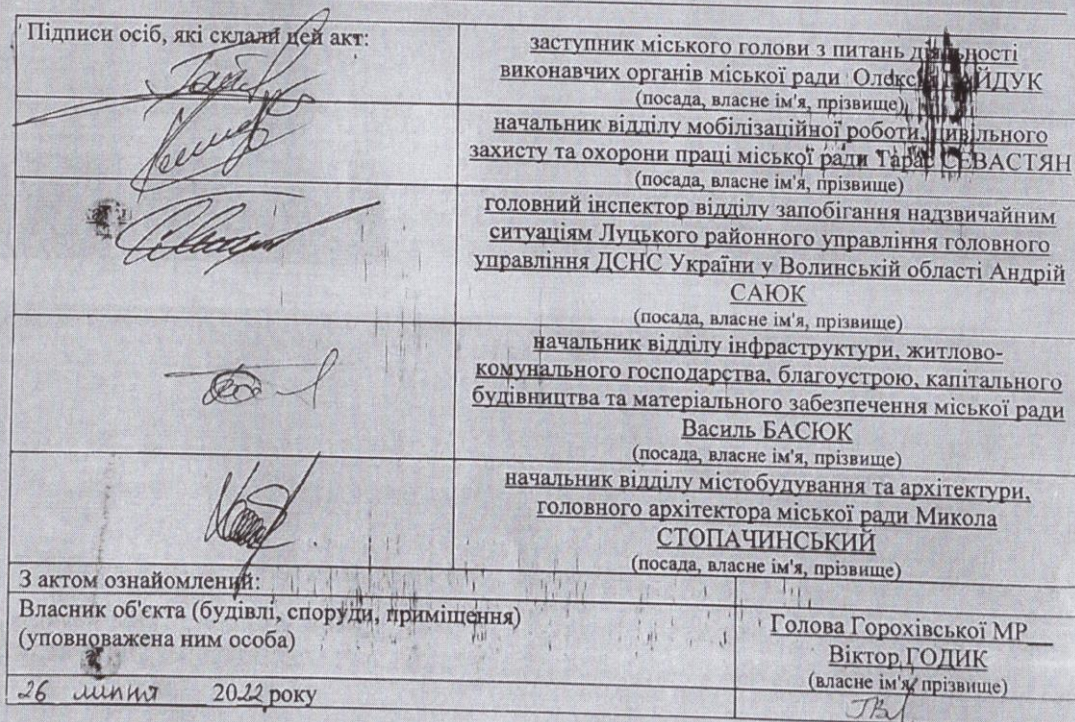 Підписи осіб, які склали цей акт:
заступник міського голови з питань діяльності
виконавчих органів міської ради Олекс ГАЙДУК
(посада, власне ім'я, прізвище)
начальник відділу мобілізаційної роботи, цивільного
захисту та охорони праці міської ради Тарас СЕВАСТЯН
(посада, власне ім'я, прізвище)
головний інспектор відділу запобігання надзвичайним
ситуаціям Луцького районного управління головного
управління ДСНС України у Волинській області Андрій
САЮК
(посада, власне ім'я, прізвище)
начальник відділу інфраструктури, житлово-
комунального господарства, благоустрою, капітального
будівництва та матеріального забезпечення міської ради
Василь БАСЮК
(посада, власне ім'я, прізвище)
начальник відділу містобудування та архітектури,
головного архітектора міської ради Микола
СТОПАЧИНСЬКИЙ
(посада, власне ім'я, прізвище)
З актом ознайомлений:
Власник об'єкта (будівлі, споруди, приміщення)
(уповноважена ним особа)
Голова Горохівської МР
Віктор ГОДИК
(власне ім'я, прізвище)
26 липня 2022 року